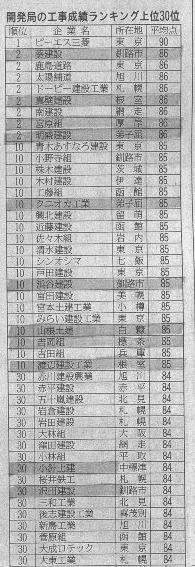 開発局の工事成績ランキング上位30位
順位 企業名 所在地 平均点
1 ピーエス三菱 東京 90
2 葵建設 釧路市 86
2 鹿島道路 東京 86
2 太陽舗道 旭川 86
2 ドーピー建設工業 札幌 86
2 真壁建設 根室 86
2 東建設 網走 86
2 宮脇組 厚岸 86
2 明盛建設 弟子屈 86
10 青木あすなろ建設 東京 85
10 小野寺組 釧路市 85
10 株木建設 茨城 85
10 木村建設 伊達 85
10 工藤組 函館 85
10 クニオカ工業 弟子屈 85
10 興北建設 留萌 85
10 近藤建設 函館 85
10 佐々木組 岩内 85
10 清水建設 東京 85
10 シンオシマ 七飯 85
10 戸田建設 東京 85
10 浜谷建設 釧路市 85
10 宮田建設 美幌 85
10 宮本土建工業 小樽 85
10 みらい建設工業 東京 85
10 山根土建 白糠 85
10 吉岡組 標茶 85
10 吉田組 兵庫 85
10 渡辺建設工業 根室 85
30 赤川建設興業 旭川 84
30 赤平建設 赤平 84
30 五十嵐建設 北見 84
30 岩倉建設 札幌 84
30 岩田建設 札幌 84
30 大林組 大阪 84
30 窪田建設 網走 84
30 小林組 平取 84
30 小針土建 中標津 84
30 桜井鉄工 札幌 84
30 沢田建設 釧路市 84
30 三和工業 北見 84
30 後志建設工業 喜茂別 84
30 新島工業 旭川 84
30 菅原組 函館 84
30 大成ロテック 東京 84
30 大東工業 札幌 84